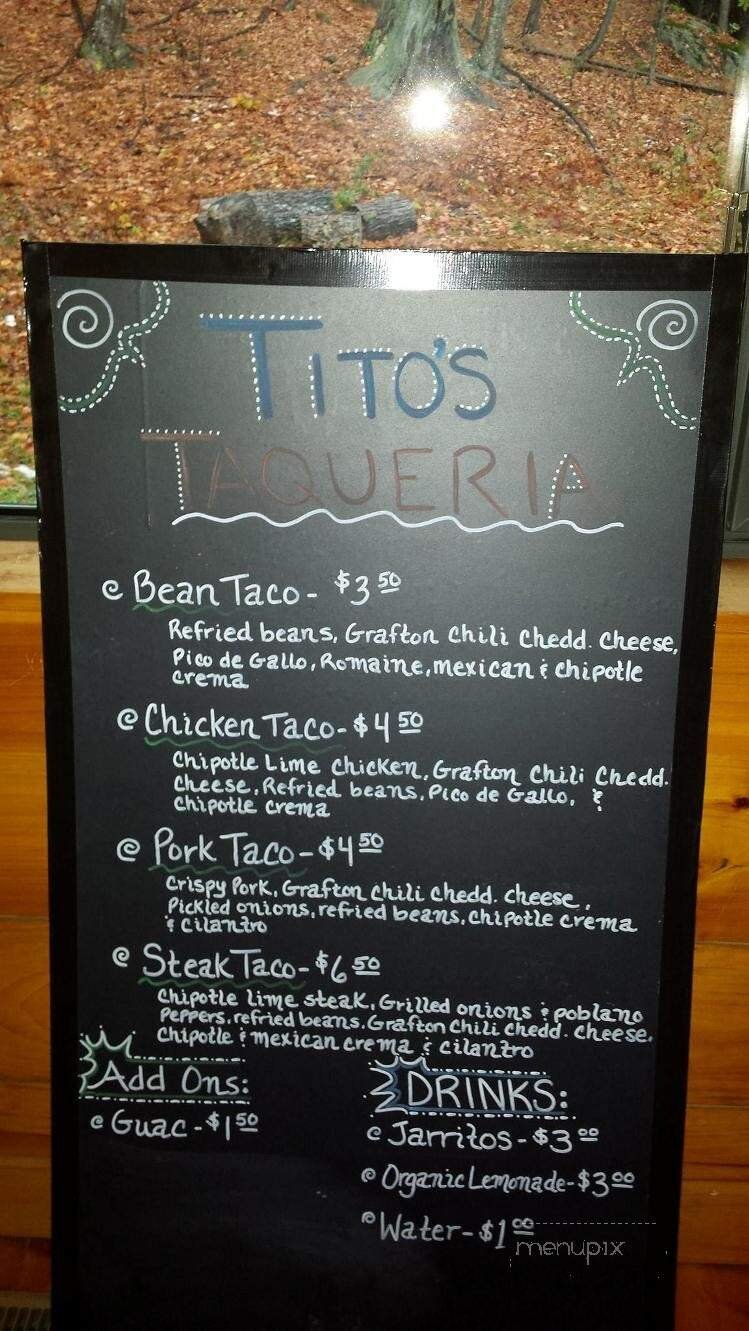 TITO'S
TAQUERIA
Bean Taco - $3 50
Refried beans, Grafton Chili Chedd. Cheese,
Pico de Gallo, Romaine, mexican & chipotle
crema
Chicken Taco - $4 50
Chipotle Lime Chicken, Grafton Chili Chedd.
Cheese, Refried beans, Pico de Gallo, &
Chipotle crema
Pork Taco - $4 50
Crispy Pork, Grafton Chili Chedd. Cheese,
Pickled onions, refried beans, chipotle crema
& cilantro
Steak Taco - $6 50
Chipotle lime steak, Grilled onions & poblano
Peppers, refried beans, Grafton Chili Chedd. Cheese,
Chipotle & mexican crema & cilantro
Add Ons:
Guac - $1 50
DRINKS:
Jarritos - $3 00
Organic Lemonade - $3 00
Water - $1 00
menupix